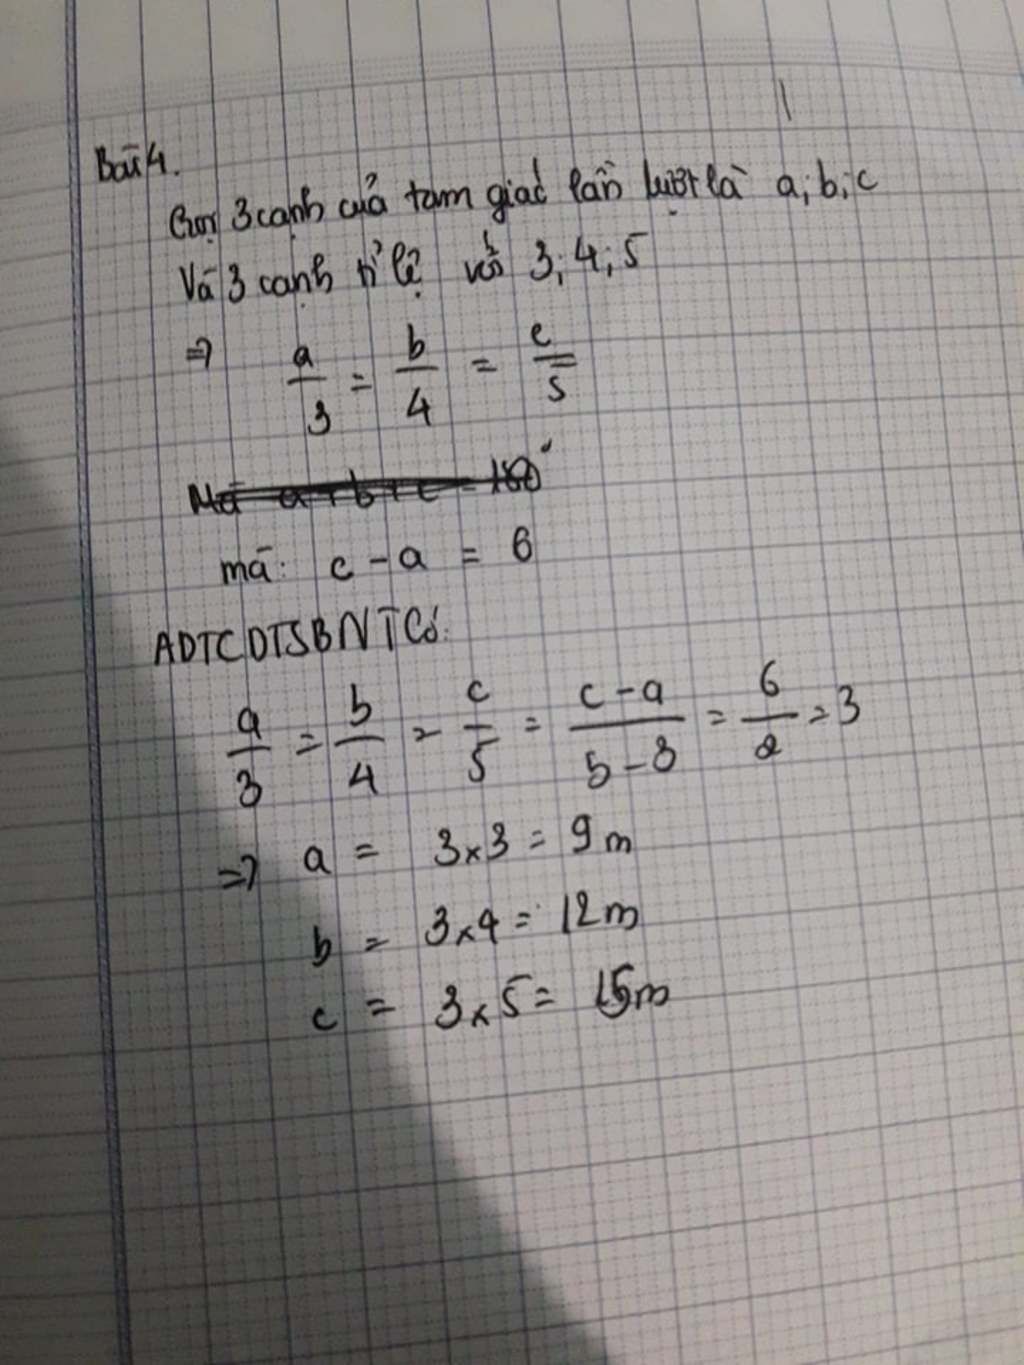 Bài 4.
Gọi 3 cạnh của tam giác lần lượt là a; b; c
Và 3 cạnh tỉ lệ với 3; 4; 5
=> a/3 = b/4 = c/5
Mà a + b + c = 180°
mà: c - a = 6
ADTCDTSBNTCó:
a/3 = b/4 = c/5 = c-a/5-3 = 6/2 = 3
=> a = 3x3 = 9m
b = 3x4 = 12m
c = 3x5 = 15m